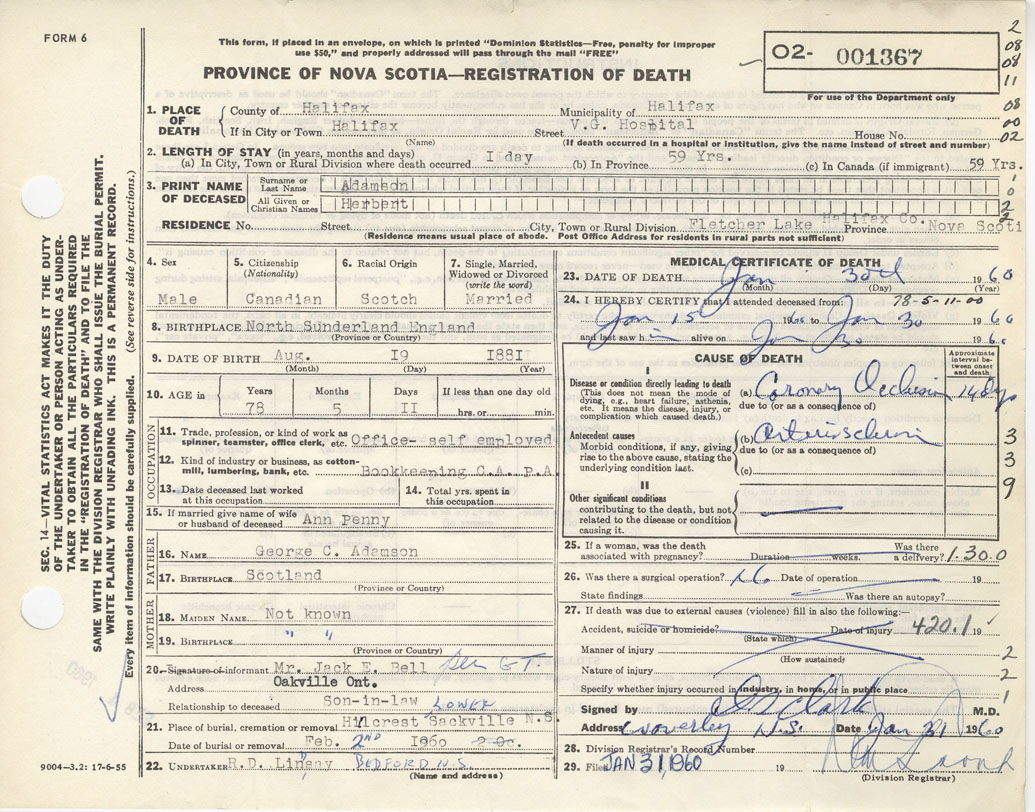 FORM 6
This form, if placed in an envelope, on which is printed "Dominion Statistics—Free, penalty for improper
use $50," and properly addressed will pass through the mail "FREE"
PROVINCE OF NOVA SCOTIA—REGISTRATION OF DEATH
O2- 001367
For use of the Department only
2
08
08
11
08
00
02
1. PLACE OF DEATH
County of Halifax
Municipality of Halifax
If in City or Town Halifax
(Name)
Street V.G. Hospital House No.
(If death occurred in a hospital or institution, give the name instead of street and number)
2. LENGTH OF STAY (in years, months and days)
(a) In City, Town or Rural Division where death occurred I day (b) In Province 59 Yrs. (c) In Canada (if immigrant) 59 Yrs.
3. PRINT NAME OF DECEASED
Surname or Last Name Adamson
All Given or Christian Names Herbert
RESIDENCE No. Street City, Town or Rural Division Fletcher Lake Halifax Co. Province Nova Scoti
(Residence means usual place of abode. Post Office Address for residents in rural parts not sufficient)
4. Sex
Male
5. Citizenship
(Nationality)
Canadian
6. Racial Origin
Scotch
7. Single, Married,
Widowed or Divorced
(write the word)
Married
8. BIRTHPLACE North Sunderland England
(Province or Country)
9. DATE OF BIRTH Aug. I9 I88I
(Month) (Day) (Year)
10. AGE in
Years Months Days If less than one day old
78 5 II hrs. or min.
OCCUPATION
11. Trade, profession, or kind of work as
spinner, teamster, office clerk, etc. Office- self employed
12. Kind of industry or business, as cotton-
mill, lumbering, bank, etc. Bookkeening C.A. P.A
13. Date deceased last worked
at this occupation
14. Total yrs. spent in
this occupation
15. If married give name of wife
or husband of deceased Ann Penny
FATHER
16. NAME George C. Adamson
17. BIRTHPLACE Scotland
(Province or Country)
MOTHER
18. MAIDEN NAME Not known
19. BIRTHPLACE " "
(Province or Country)
20. Signature of informant Mr. Jack E. Bell per GT
Address Oakville Ont.
Relationship to deceased Son-in-law
LOWER
21. Place of burial, cremation or removal Hillcrest Sackville N.S.
Date of burial or removal Feb. 2ND I960
22. UNDERTAKER R.D. Linsay BEDFORD N.S.
(Name and address)
MEDICAL CERTIFICATE OF DEATH
23. DATE OF DEATH Jan 30th 1960
(Month) (Day) (Year)
24. I HEREBY CERTIFY that I attended deceased from: 78-5-11-00
Jan 15 1960 to Jan 30 1960
and last saw h im alive on Jan 30 1960
CAUSE OF DEATH
Approximate
interval be-
tween onset
and death
I
Disease or condition directly leading to death
(This does not mean the mode of
dying, e.g., heart failure, asthenia,
etc. It means the disease, injury, or
complication which caused death.)
(a) Coronary Occlusion 14 dys
due to (or as a consequence of)
Antecedent causes
Morbid conditions, if any, giving
rise to the above cause, stating the
underlying condition last.
(b) arteriosclerosis
due to (or as a consequence of)
(c)
3
3
9
II
Other significant conditions
contributing to the death, but not
related to the disease or condition
causing it.
25. If a woman, was the death
associated with pregnancy? Duration weeks. Was there
a delivery? 1.30.0
26. Was there a surgical operation? No Date of operation 19
State findings Was there an autopsy?
27. If death was due to external causes (violence) fill in also the following:—
Accident, suicide or homicide? Date of injury 420.1 19
(State which)
Manner of injury 2
(How sustained)
Nature of injury 2
Specify whether injury occurred in industry, in home, or in public place 1
Signed by Clark M.D.
Address Waverley N.S. Date Jan 31 1960
28. Division Registrar's Record Number
29. Filed JAN 31, 1960 19
(Division Registrar)
9004—3.2: 17-6-55
SEC. 14—VITAL STATISTICS ACT MAKES IT THE DUTY
OF THE UNDERTAKER OR PERSON ACTING AS UNDER-
TAKER TO OBTAIN ALL THE PARTICULARS REQUIRED
IN THE "REGISTRATION OF DEATH" AND TO FILE THE
SAME WITH THE DIVISION REGISTRAR WHO SHALL ISSUE THE BURIAL PERMIT.
WRITE PLAINLY WITH UNFADING INK. THIS IS A PERMANENT RECORD.
Every item of information should be carefully supplied. (See reverse side for instructions.)